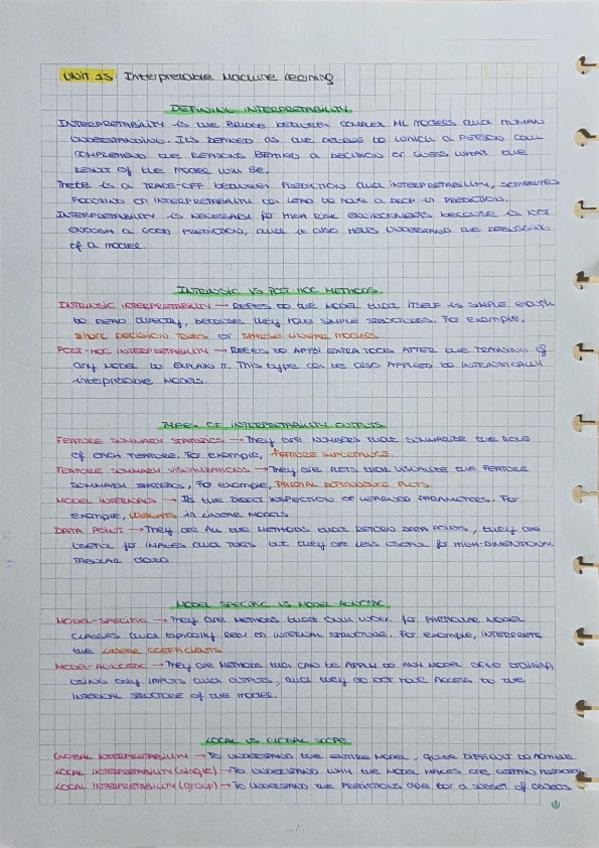 UNIT 15: Interpretable Machine Learning
DEFINING INTERPRETABILITY
INTERPRETABILITY is the BRIDGE between COMPLEX ML MODELS and HUMAN
UNDERSTANDING. It's DEFINED as the DEGREE TO WHICH a PERSON can
COMPREHEND the REASONS BEHIND a DECISION or GUESS WHAT the
RESULT of the MODEL WILL BE.
There is a TRADE-OFF between PREDICTION and INTERPRETABILITY, SOMETIMES
FOCUSING on INTERPRETABILITY can LEAD to have a DROP in PREDICTION.
INTERPRETABILITY is NECESSARY for HIGH RISK ENVIRONMENTS because is not
enough a GOOD PREDICTION, and it also HELPS UNDERSTAND the DEBUGGING
of a MODEL.
INTRINSIC VS POST-HOC METHODS
INTRINSIC INTERPRETABILITY → REFERS to the MODEL that ITSELF is SIMPLE enough
to READ directly, because they have SIMPLE STRUCTURES. For example,
short DECISION TREES or SPARSE LINEAR MODELS
POST-HOC INTERPRETABILITY → REFERS to APPLY EXTRA TOOLS AFTER the TRAINING of
any MODEL to EXPLAIN it. This type can be also APPLIED to INTRINSICALLY
interpretable MODELS.
TYPES OF INTERPRETABILITY OUTPUTS
FEATURE SUMMARY STATISTICS → They are NUMBERS that SUMMARIZE the ROLE
of each FEATURE. For example, FEATURE IMPORTANCE.
FEATURE SUMMARY VISUALIZATIONS → They are PLOTS that VISUALIZE the FEATURE
SUMMARY STATISTICS, For example, PARTIAL DEPENDENCE PLOTS
MODEL INTERNALS → Is the DIRECT INSPECTION of LEARNED PARAMETERS. For
example, WEIGHTS in LINEAR MODELS
DATA POINT → They are ALL the METHODS that RETURN DATA POINTS, they are
USEFUL for IMAGES and TEXTS but they are LESS USEFUL for HIGH-DIMENSIONAL
TABULAR DATA.
MODEL SPECIFIC VS MODEL AGNOSTIC
MODEL-SPECIFIC → They are METHODS that ONLY WORK for PARTICULAR MODEL
CLASSES and typically RELY on INTERNAL STRUCTURE. For example, INTERPRETE
the LINEAR COEFFICIENTS
MODEL-AGNOSTIC → They are METHODS that CAN BE APPLY to ANY MODEL AFTER TRAINING,
USING ONLY INPUTS and OUTPUTS, and they DO NOT have ACCESS to the
INTERNAL STRUCTURE of the MODEL.
LOCAL VS GLOBAL SCOPE
GLOBAL INTERPRETABILITY → TO UNDERSTAND the ENTIRE MODEL, QUITE DIFFICULT to ACHIEVE.
LOCAL INTERPRETABILITY (single) → TO UNDERSTAND WHY the MODEL MAKES ONE CERTAIN PREDICTION
LOCAL INTERPRETABILITY (group) → TO UNDERSTAND the PREDICTIONS for a SUBSET of OBJECTS
.../...